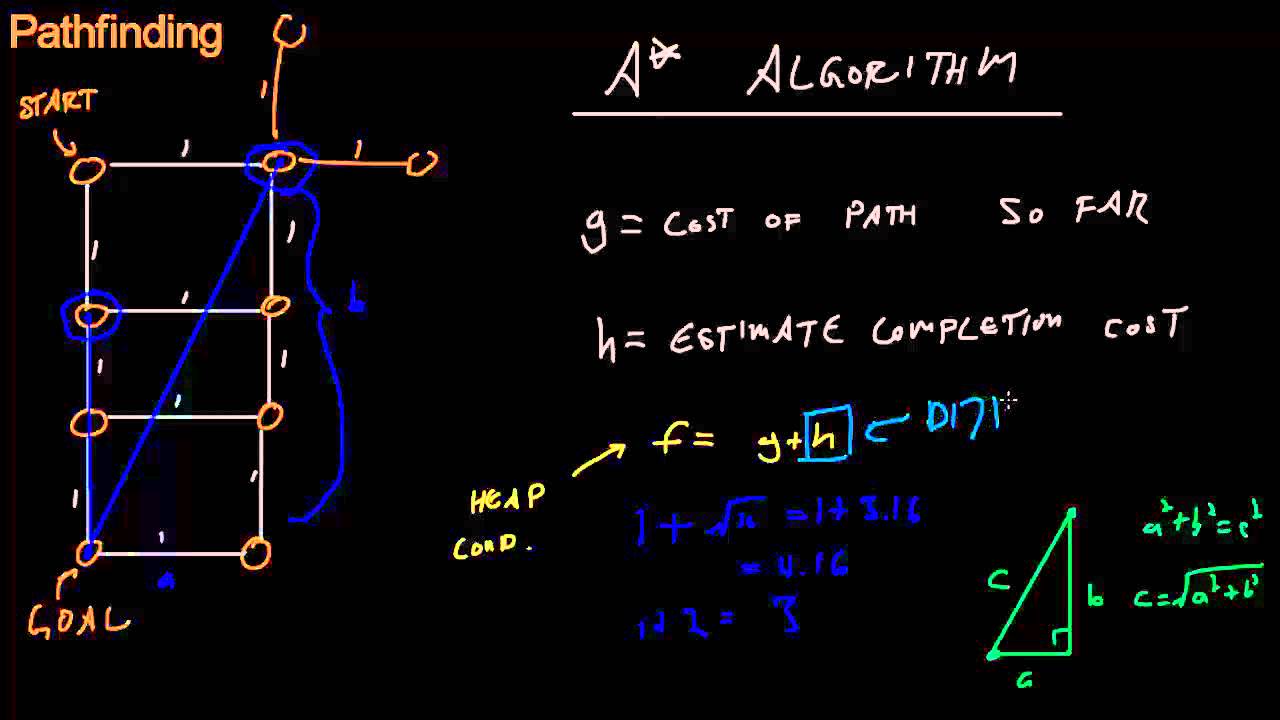 Pathfinding
START
1
1
1
1
1
1
1
1
1
1
1
1
1
b
a
GOAL
A* ALGORITHM
g = COST OF PATH SO FAR
h = ESTIMATE COMPLETION COST
f = g + h
HEAP
COND.
1 + √10 = 1 + 3.16
= 4.16
1 + 2 = 3
c
b
a
a² + b² = c²
c = √a² + b²